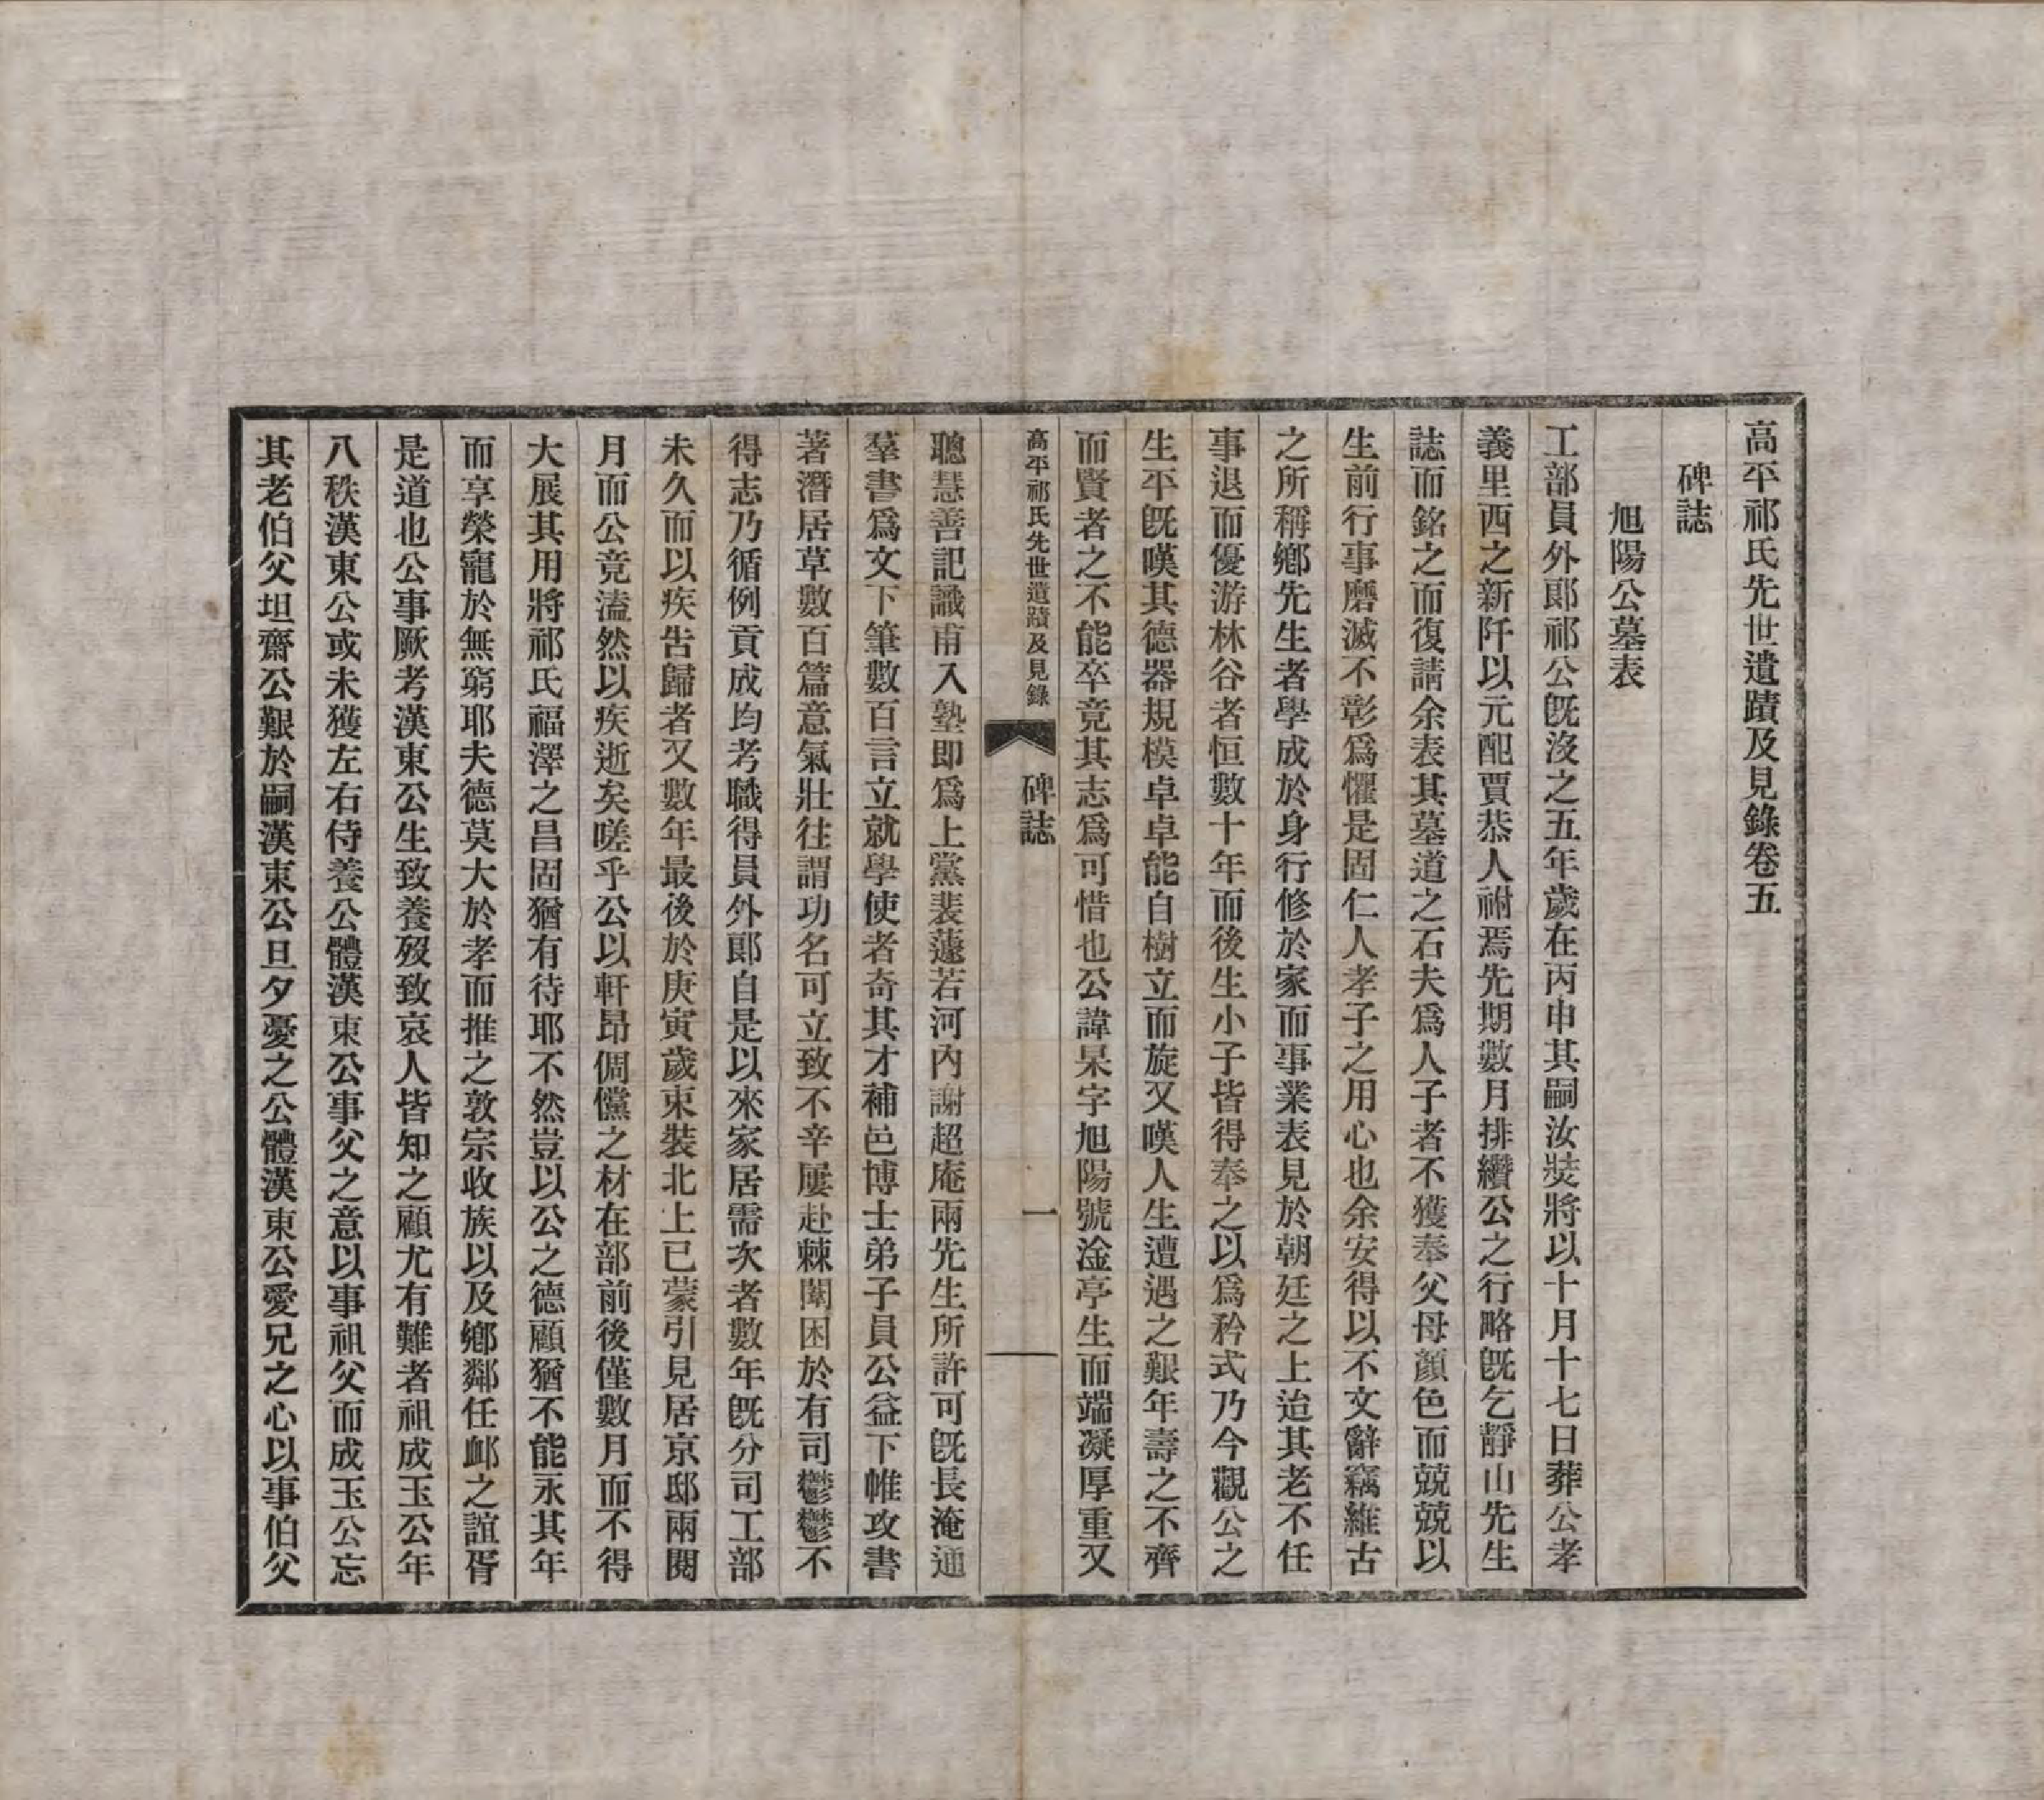 高平祁氏先世遺蹟及見錄卷五
碑誌
旭陽公墓表
工部員外郞祁公旣沒之五年歲在丙申其嗣汝㷡將以十月十七日葬公孝
義里西之新阡以元配賈恭人祔焉先期數月排纘公之行略旣乞靜山先生
誌而銘之而復請余表其墓道之石夫爲人子者不獲奉父母顏色而兢兢以
生前行事磨滅不彰爲懼是固仁人孝子之用心也余安得以不文辭竊維古
之所稱鄕先生者學成於身行修於家而事業表見於朝廷之上迨其老不任
事退而優游林谷者恒數十年而後生小子皆得奉之以爲矜式乃今觀公之
生平旣嘆其德器規模卓卓能自樹立而旋又嘆人生遭遇之艱年壽之不齊
而賢者之不能卒竟其志爲可惜也公諱杲字旭陽號淦亭生而端凝厚重又
高平祁氏先世遺蹟及見錄 碑誌 一
聰慧善記識甫入塾卽爲上黨裴蘧若河內謝超庵兩先生所許可旣長淹通
羣書爲文下筆數百言立就學使者奇其才補邑博士弟子員公益下帷攻書
著潛居草數百篇意氣壯往謂功名可立致不辛屢赴棘闈困於有司鬱鬱不
得志乃循例貢成均考職得員外郞自是以來家居需次者數年旣分司工部
未久而以疾吿歸者又數年最後於庚寅歲束裝北上已蒙引見居京邸兩閱
月而公竟溘然以疾逝矣嗟乎公以軒昂倜儻之材在部前後僅數月而不得
大展其用將祁氏福澤之昌固猶有待耶不然豈以公之德顧猶不能永其年
而享榮寵於無窮耶夫德莫大於孝而推之敦宗收族以及鄕鄰任卹之誼胥
是道也公事厥考漢東公生致養歿致哀人皆知之顧尤有難者祖成玉公年
八秩漢東公或未獲左右侍養公體漢東公事父之意以事祖父而成玉公忘
其老伯父坦齋公艱於嗣漢東公旦夕憂之公體漢東公愛兄之心以事伯父